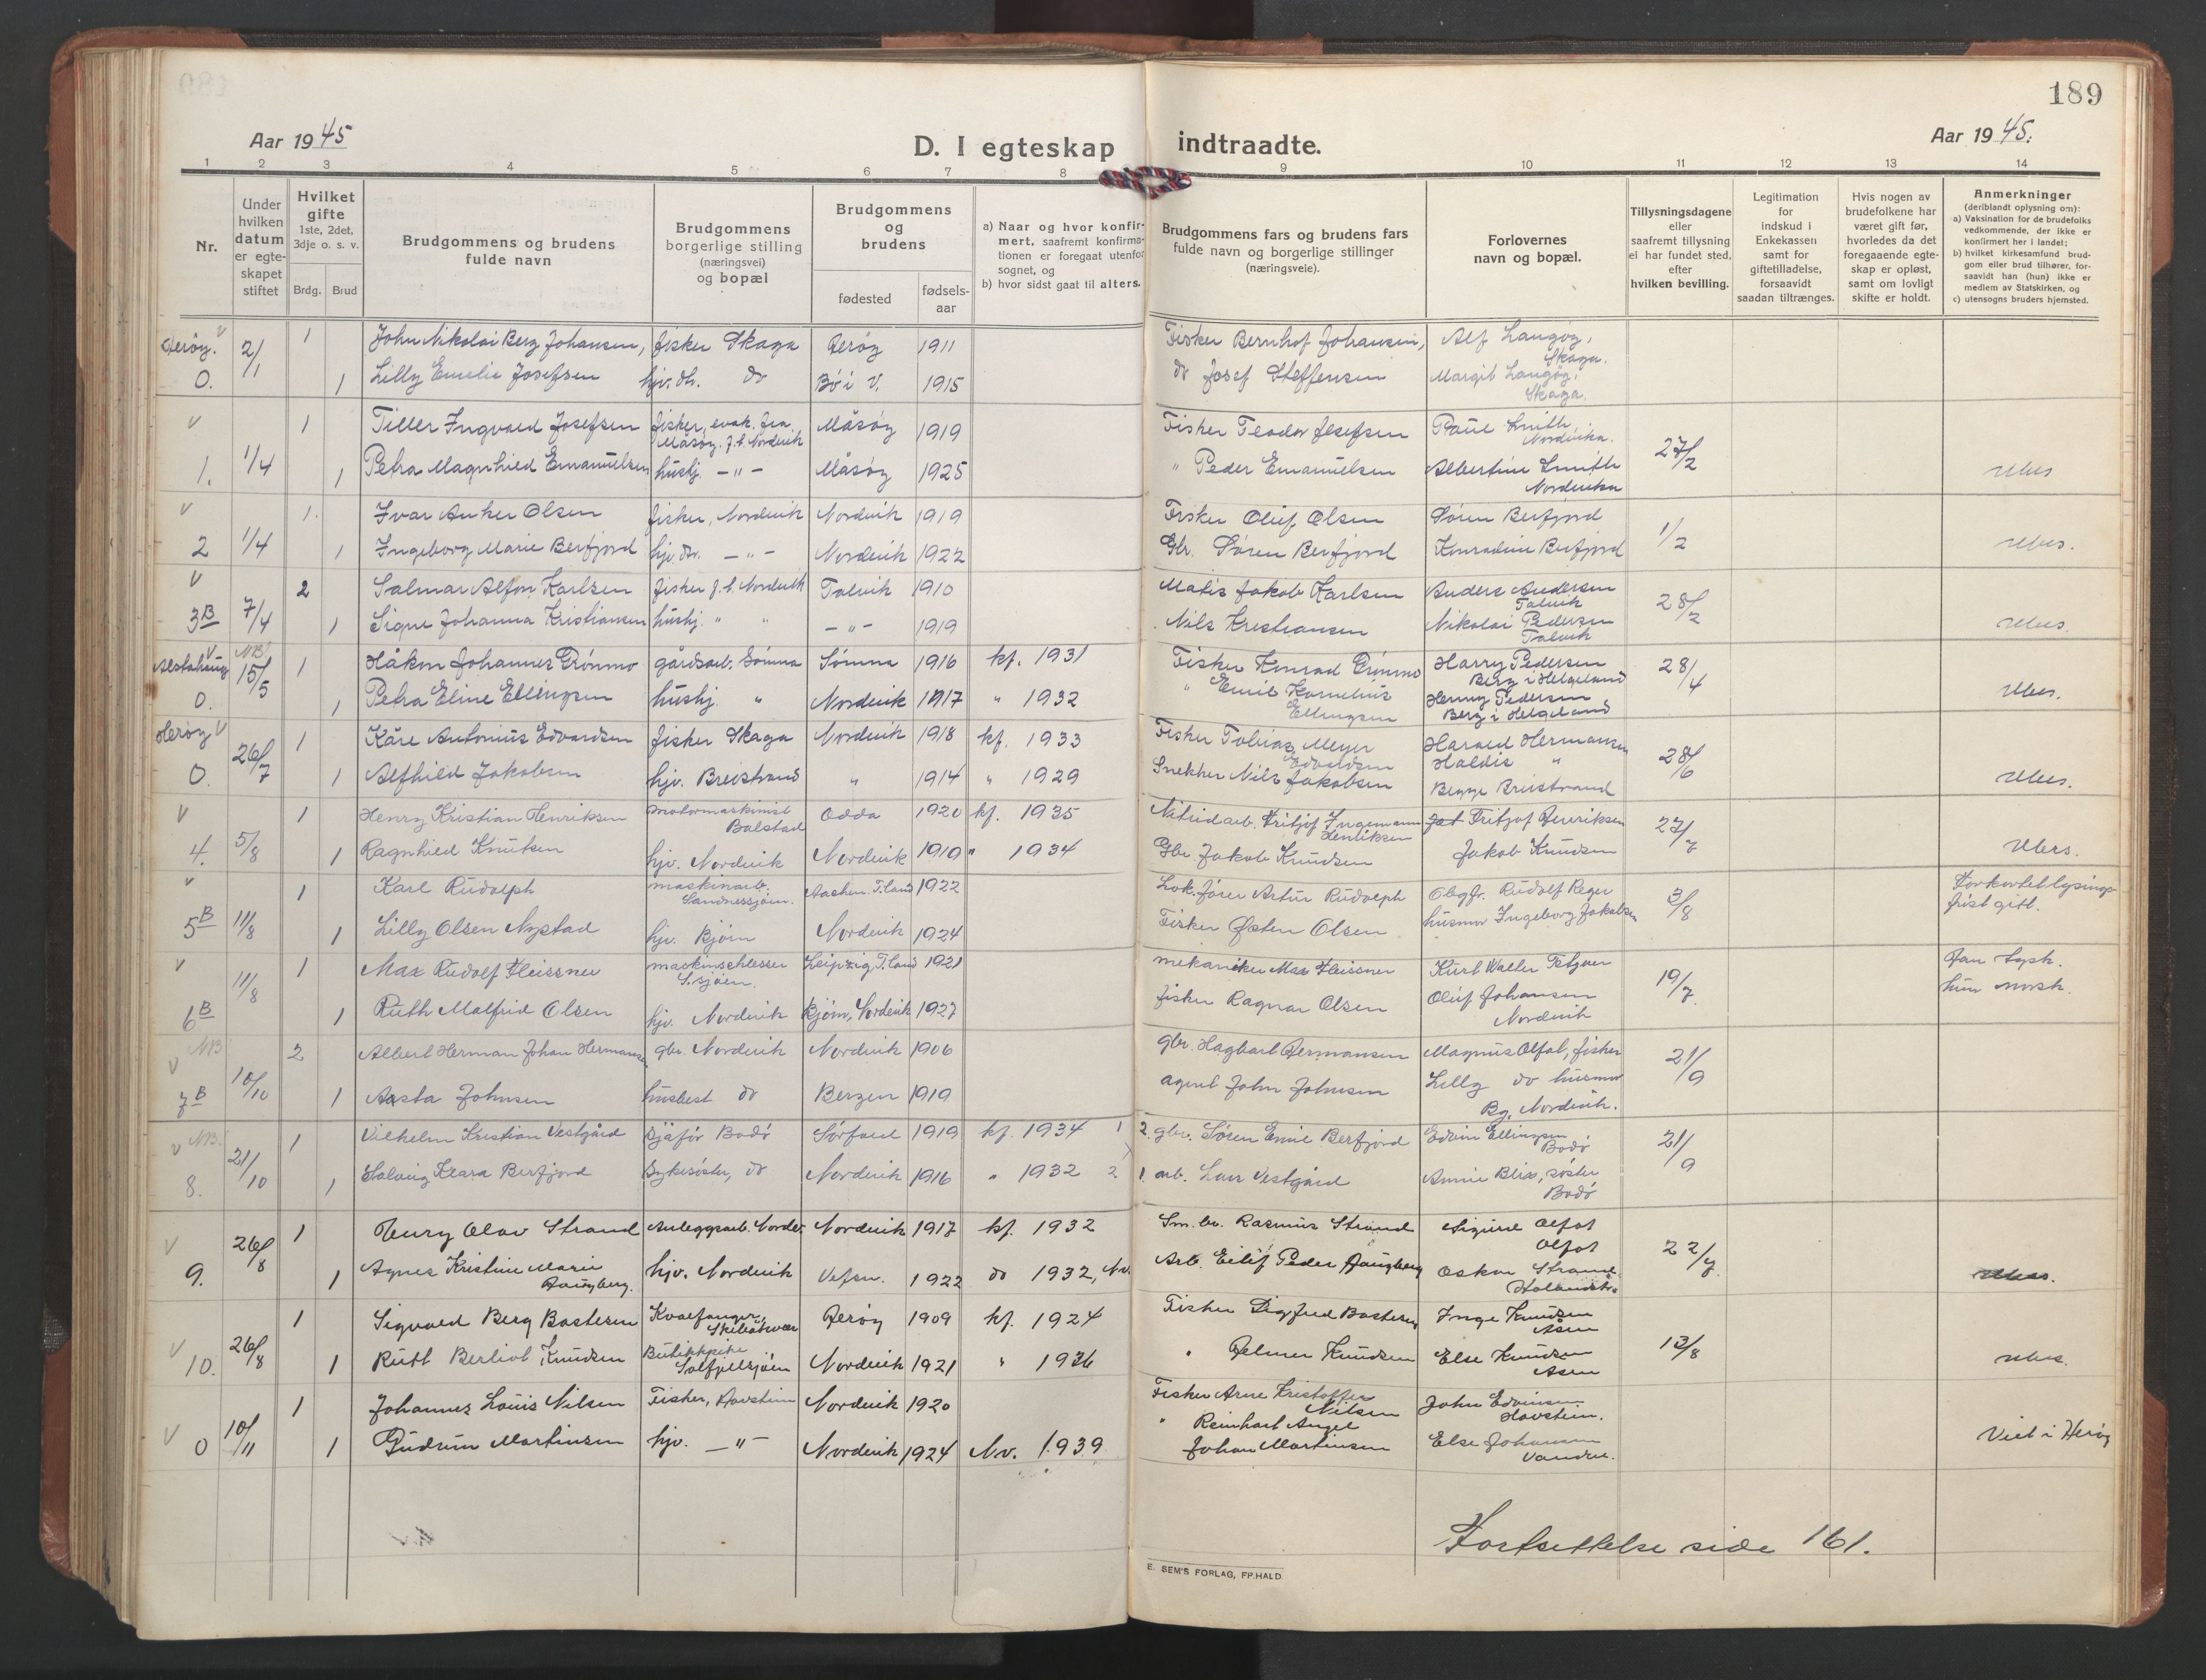 189
Aar 1945
D. I egteskap indtraadte.
Aar 1945.
1 2 3 4 5 6 7 8 9 10 11 12 13 14
Nr.
Under hvilken datum er egte-skapet stiftet
Hvilket gifte
1ste, 2det, 3dje o. s. v.
Brdg. Brud
Brudgommens og brudens fulde navn
Brudgommens borgerlige stilling (næringsvei) og bopæl
Brudgommens og brudens
fødested
fødsels-aar
a) Naar og hvor konfir-mert, saafremt konfirma-tionen er foregaat utenfor sognet, og
b) hvor sidst gaat til alters.
Brudgommens fars og brudens fars fulde navn og borgerlige stillinger (næringsveie).
Forlovernes navn og bopæl.
Tillysningsdagene eller saafremt tillysning ei har fundet sted, efter hvilken bevilling.
Legitimation for indskud i Enkekassen samt for giftetilladelse, forsaavidt saadan tiltrænges.
Hvis nogen av brudefolkene har været gift før, hvorledes da det foregaaende egte-skap er opløst, samt om lovligt skifte er holdt.
Anmerkninger
(deriblandt oplysning om):
a) Vaksination for de brudefolks vedkommende, der ikke er konfirmert her i landet;
b) hvilket kirkesamfund brud-gom eller brud tilhører, for-saavidt han (hun) ikke er medlem av Statskirken, og
c) utensogns bruders hjemsted.
Herøy. 2/1 1 John Nikolai Berg Johansen, fisker Skaga Herøy 1911 Fisker Bernhof Johansen, Alf Langøy, Skaga.
0. 1 Lilly Emelie Josefsen hjv. do Bø i V. 1915 do Josef Steffensen Margit Langøy, Skaga.
v 1 Tiller Ingvald Josefsen fisker, evak. fra Måsøy, f.t. Nordvik Måsøy 1919 Fisker Teodor Josefsen Paul Smith Nordvika. 27/2
1. 1/4 1 Petra Magnhild Emanuelsen hushj. -"- Måsøy 1925 " Peder Emanuelsen Albertine Smith Nordvika
v 1. Ivar Anker Olsen fisker, Nordvik Nordvik 1919 Fisker Oluf Olsen Søren Berfjord 1/2
2 1/4 1 Ingeborg Marie Berfjord hjv. dtr. -"- Nordvik 1922 Gbr. Søren Berfjord Konradine Berfjord
v 2 Salmar Alfon Karlsen fisker f.t. Nordvik Talvik 1910 Matis Jakob Karlsen Anders Andersen Talvik 28/2
3B 7/4 1 Signe Johanna Kristiansen hushj. " " -"- 1919 Nils Kristiansen Nikolai Pedersen Talvik
Alstahaug v NB! 15/5 1 Håkon Johannes Grønmo gårdsarb. Sømna Sømna 1916 kf. 1931 Fisker Konrad Grønmo Harry Pedersen Berg i Helgeland 28/4
0. 1 Petra Eline Ellingsen hushj. " Nordvik 1917 " 1932 " Emil Kornelius Ellingsen Henny Pedersen Berg i Helgeland
Herøy v 26/7 1 Kåre Antonius Edvardsen fisker Skaga Nordvik 1918 kf. 1933 Fisker Tobias Meyer Edvardsen Harald Hermansen 28/6
0. 1 Alfhild Jakobsen hjv. Breistrand " 1914 " 1929 Snekker Nils Jakobsen Haldis " Begge Breistrand
v 1 Henry Kristian Henriksen motormaskinist Balstad Odda 1920 kf. 1935 Nitridarb. Fritjof Ingemann Henriksen Fritjof Henriksen 27/7
4. 5/8 1 Ragnhild Knutsen hjv. Nordvik Nordvik 1919 " 1934 Gbr. Jakob Knudsen Jakob Knudsen
v 1 Karl Rudolph maskinarb. Sandnessjøen. Aachen. T.land 1922 Lok. fører Artur Rudolph Obgfr. Rudolf Reger 3/8 Forkortet lysings-frist gitt.
5B 11/8 1 Lilly Olsen Nystad hjv. Bjørn Nordvik 1924 Fisker Østen Olsen husmor Ingeborg Jakobsen
v 1 Max Rudolf Fleissner maskinschlosser S.sjøen. Leipzig, T.land 1921 mekaniker Max Fleissner Kurt Walter 19/7 Han tysk.
6B 11/8 1 Ruth Malfrid Olsen hjv. Nordvik Bjørn, Nordvik 1927 fisker Ragnar Olsen Oluf Johansen Nordvik hun norsk.
v NB 2 Albert Herman Johan Hermansen gbr. Nordvik Nordvik 1906 gbr. Hagbart Hermansen Magnus Olfot, fisker 21/9
7B 10/10 1 Aasta Johnsen husbest do Bergen 1919 agent John Johnsen Lilly do husmor Bg. Nordvik.
v NB. 1 Vilhelm Kristian Vestgård sjåfør Bodø Sørfold 1919 kf. 1934 1 2. gbr. Søren Emil Berfjord Edvin Ellingsen Bodø 21/9
8. 21/10 1 Solveig Klara Berfjord Sykesøster, do Nordvik 1916 " 1932 2 1. arb. Lars Vestgård Annie Blix, søster Bodø
v 1 Henry Olav Strand Anleggsarb. Nordv. Nordvik 1917 kf. 1932 Sm.br. Rasmus Strand Sigurd Olfot Olfot 22/7
9. 26/8 1 Agnes Kristine Marie Haugberg. hjv. Nordvik Vefsn. 1922 do 1932, Nv. Arb. Eilif Peder Haugberg Oskar Strand.
1 Sigvald Berg Bastesen Kvalfanger, Skibåtsvær Herøy 1909 kf. 1924 Fisker Sigfred Bastesen Inge Knudsen Åsen 13/8
v 10. 26/8 1 Ruth Berliot Knudsen Butikkpike Solfjellsjøen Nordvik 1921 " 1936 " Helmer Knudsen Else Knudsen Åsen
1 Johannes Louis Nilsen Fisker, Havstein Nordvik 1920 Fisker Arne Kristoffer Nilsen John Edvinsen Havstein.
v 0 10/11 1 Gudrun Martinsen hjv. -"- Nordvik 1924 Nv. 1939 " Reinhart Angel Johan Martinsen Else Johansen Viet i Herøy
Fortsettelse side 161.
E. SEM'S FORLAG, FP.HALD